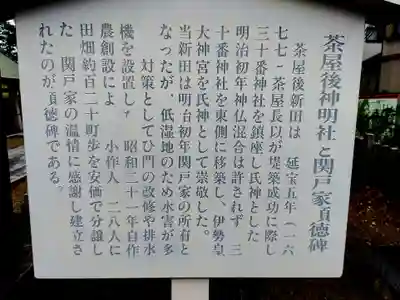 茶屋後神明社と関戸家頁徳碑
茶屋後新田は 延宝五年(一六
七七)茶屋長以が堤築成功に際し
三十番神社を鎮座し氏神とした
明治初年神仏混合は許されず 三
十番神社を東側に移築し、伊勢皇
大神宮を氏神として崇敬した。
当新田は明治初年関戸家の所有と
なったが、低湿地のため水害が多
く 対策としてひ門の改修や排水
機を設置し、 昭和二十一年自作
農創設によ 小作人 二八人に
田畑約百二十町歩を安価で分譲し
た 関戸家の温情に感謝し建立さ
れたのが頁徳碑である。